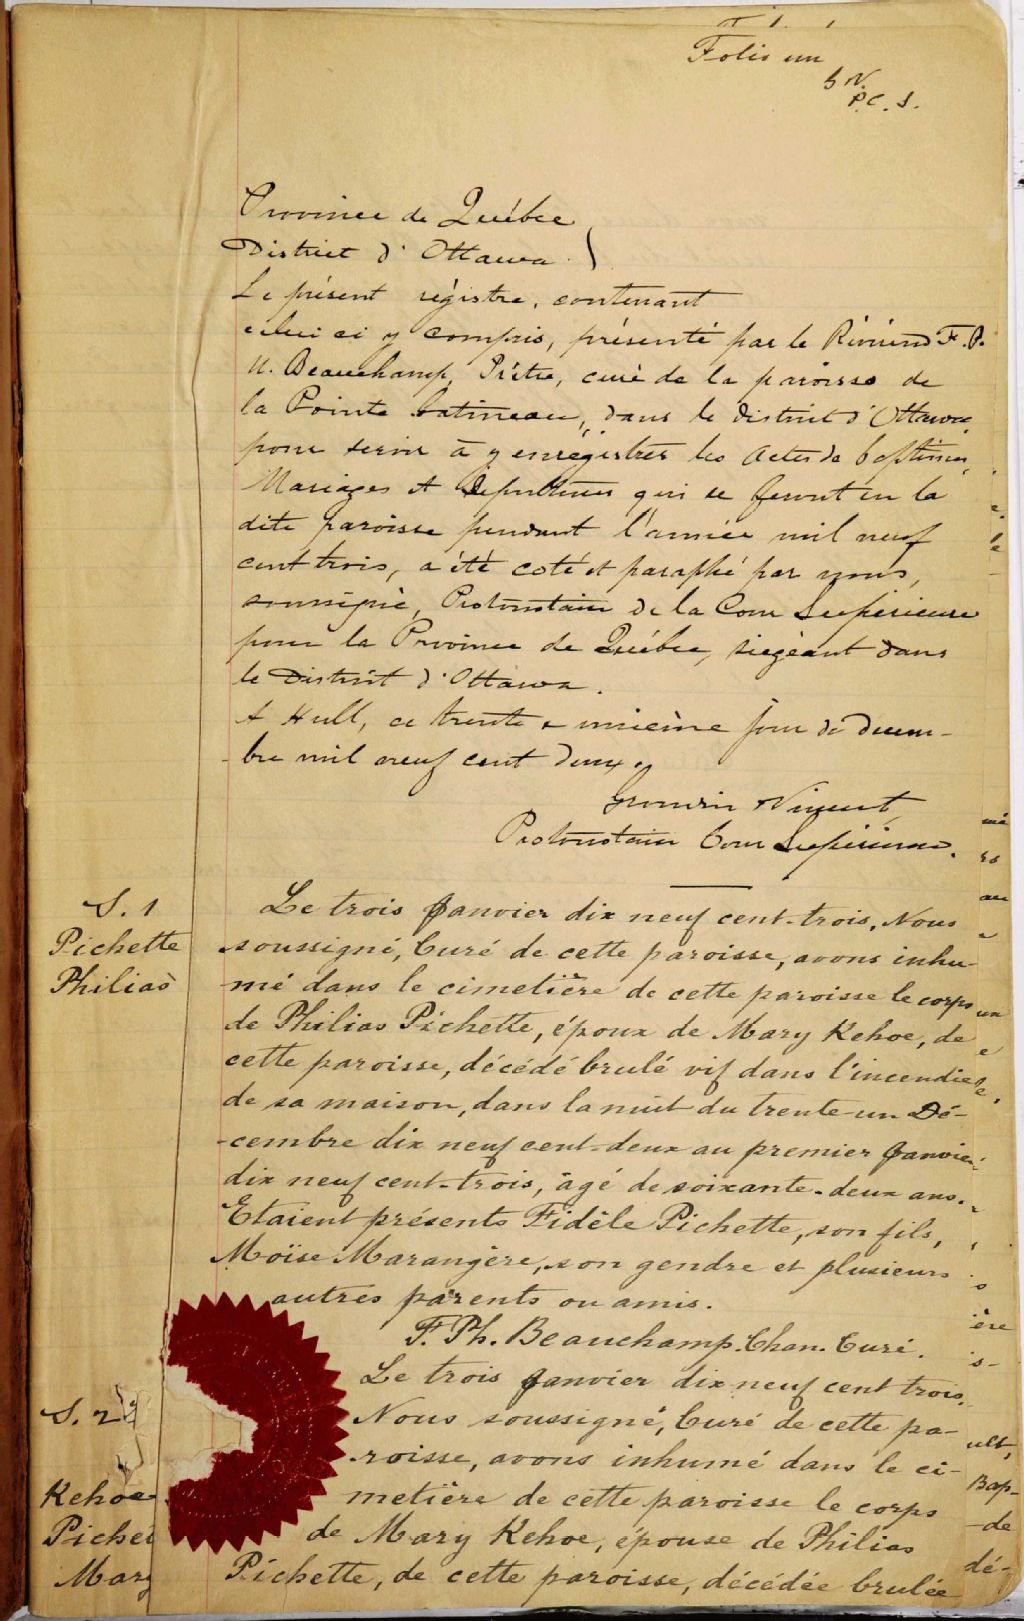 Folio un
P.C.S.
Province de Québec
District d'Ottawa
Le présent régistre, contenant
celui ci y compris, présenté par le Révérend F. P.
N. Beauchamp, Prêtre, curé de la paroisse de
la Pointe Gatineau, dans le District d'Ottawa,
pour servir à y enrégistrer les Actes de baptêmes,
Mariages et Sépultures qui se feront en la
dite paroisse pendant l'année mil neuf
cent trois, a été coté et paraphé par nous,
soussigné, Protonotaire de la Cour Supérieure
pour la Province de Québec, siégeant dans
le District d'Ottawa.
A Hull, ce trente & unième jour de Décem-
bre mil neuf cent deux.
Protonotaire Cour Supérieure.
S. 1
Pichette
Philias
Le trois Janvier dix neuf cent-trois, Nous
soussigné, Curé de cette paroisse, avons inhu-
-mé dans le cimetière de cette paroisse le corps
de Philias Pichette, époux de Mary Kehoe, de
cette paroisse, décédé brulé vif dans l'incendie
de sa maison, dans la nuit du trente-un Dé-
-cembre dix neuf cent-deux au premier Janvier
dix neuf cent-trois, âgé de soixante-deux ans.
Etaient présents Fidèle Pichette, son fils,
Moïse Marangère, son gendre et plusieurs
autres parents ou amis.
F. Ph. Beauchamp. Chan. Curé.
S. 2
Kehoe
Pichet
Mary
Le trois Janvier dix neuf cent trois,
Nous soussigné, Curé de cette pa-
-roisse, avons inhumé dans le ci-
metière de cette paroisse le corps
de Mary Kehoe, épouse de Philias
Pichette, de cette paroisse, décédée brulée
ère
is-
ult,
Bap-
-de
dé-